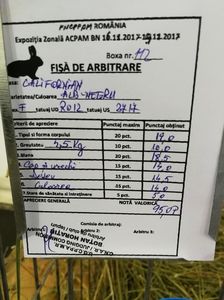 FNCPPAM ROMÂNIA
Expoziția Zonală ACPAM BN 16.12.2017-29.12.2017
Boxa nr. 112
FIȘĂ DE ARBITRARE
Rasa CALIFORNIAN
Varietatea/Culoarea ALB-NEGRU
Sex F tatuaj UD RO12 tatuaj US 2717
Criterii de apreciere Punctaj maxim Punctaj obținut
1. Tipul si forma corpului 20 pct. 19.0
2. Greutatea 4,5 Kg 10 pct.
3. Blana 20 pct. 18.5
4. Cap si urechi 15 pct.
5. 15 pct. 14.0
6. Culoarea 15 pct. 14.0
7. Starea de sănătate si întreținere 5 pct. 5.0
APRECIERE GENERALĂ NOTA VALORICĂ
95.0P
Comisia de arbitraj:
Arbitru 2:
Arbitru 3:
BOTAN HORAȚIU